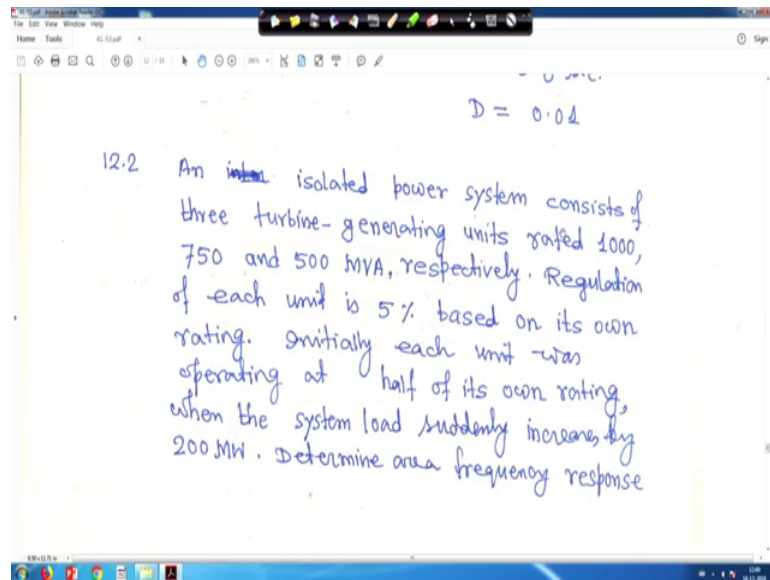 41-53.pdf - Adobe Acrobat Reader DC
File Edit View Window Help
Home Tools 41-53.pdf × Sign
D = 0.01
12.2 An isolated power system consists of
three turbine-generating units rated 1000,
750 and 500 MVA, respectively. Regulation
of each unit is 5% based on its own
rating. Initially each unit was
operating at half of its own rating,
when the system load suddenly increases by
200 MW. Determine area frequency response